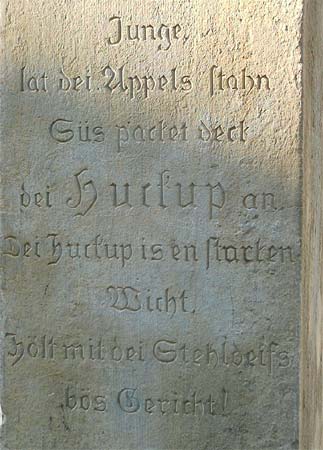 Junge,
lat dei Appels stahn
Süs packet deck
dei Huckup an.
Dei Huckup is en starken
Wicht,
Hölt mit dei Stehldeifs
bös Gericht!